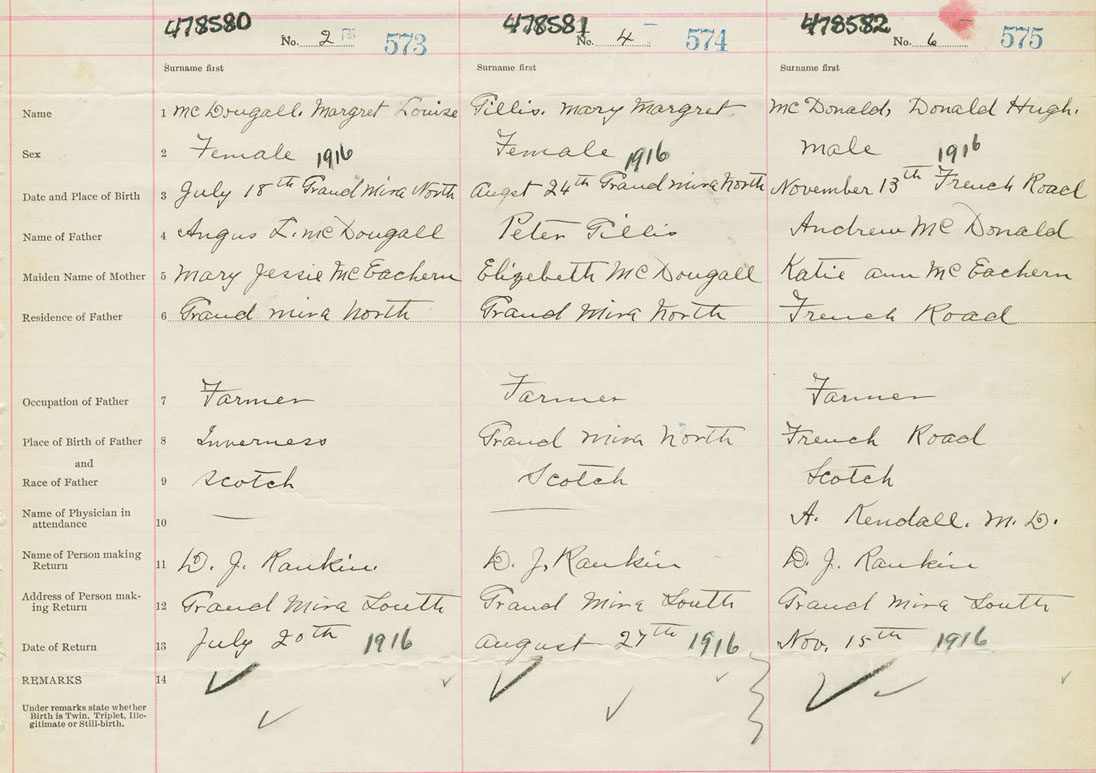 478580 478581 478582
No. 2 573 No. 4 574 No. 6 575
Surname first Surname first Surname first
Name 1 McDougall. Margret Louise Gillis. Mary Margret McDonald, Donald Hugh.
Sex 2 Female 1916 Female 1916 Male 1916
Date and Place of Birth 3 July 18th Grand Mira North Augst 24th Grand Mira North November 13th French Road
Name of Father 4 Angus L. McDougall Peter Gillis Andrew McDonald
Maiden Name of Mother 5 Mary Jessie McEachern Elizebeth McDougall Katie Ann McEachern
Residence of Father 6 Grand Mira North Grand Mira North French Road
Occupation of Father 7 Farmer Farmer Farmer
Place of Birth of Father 8 Inverness Grand Mira North French Road
and
Race of Father 9 Scotch Scotch Scotch
Name of Physician in
attendance 10 — — A. Kendall. M.D.
Name of Person making
Return 11 D. J. Rankin. D. J. Rankin D. J. Rankin
Address of Person mak-
ing Return 12 Grand Mira South Grand Mira South Grand Mira South
Date of Return 13 July 20th 1916 August 27th 1916 Nov. 15th 1916
REMARKS 14
Under remarks state whether
Birth is Twin, Triplet, Ille-
gitimate or Still-birth.